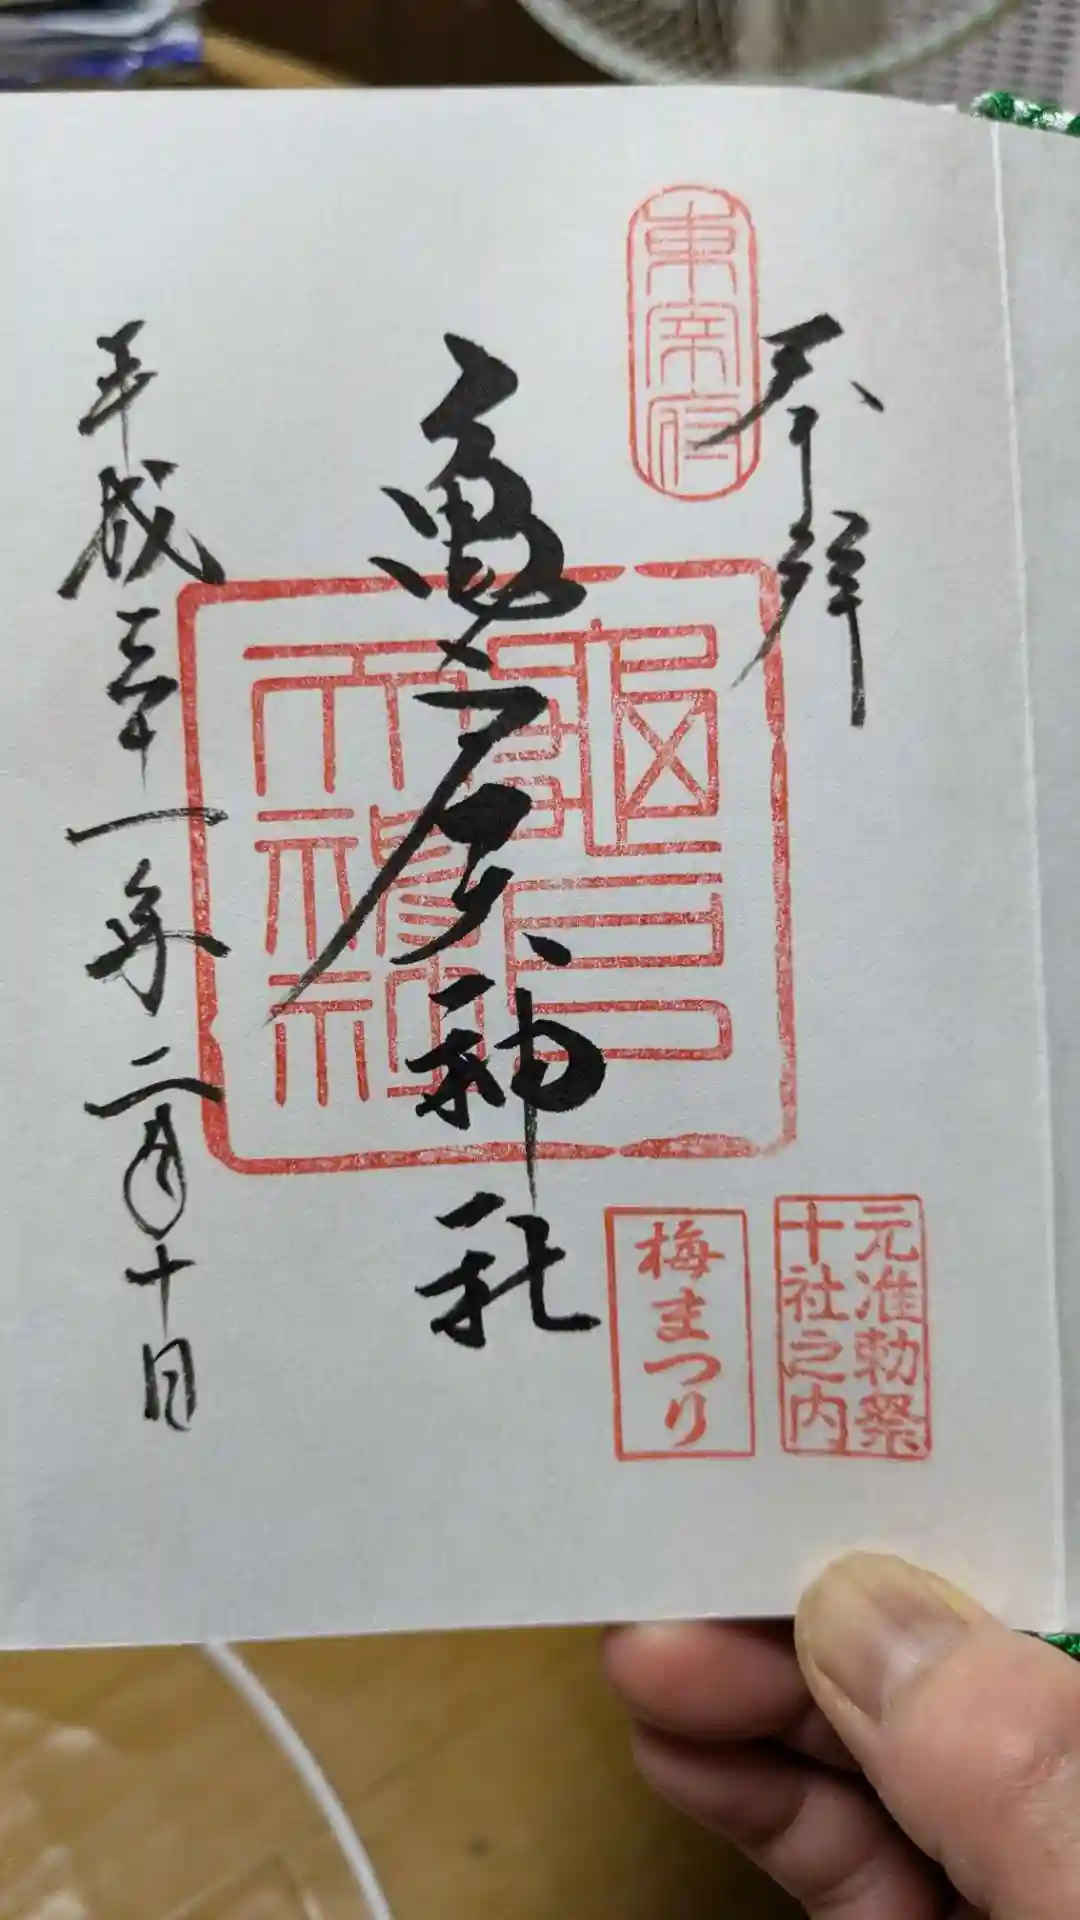 奉拝
東宰府
亀戸天神社
平成三十一年二月十日
元准勅祭
十社之内
梅まつり